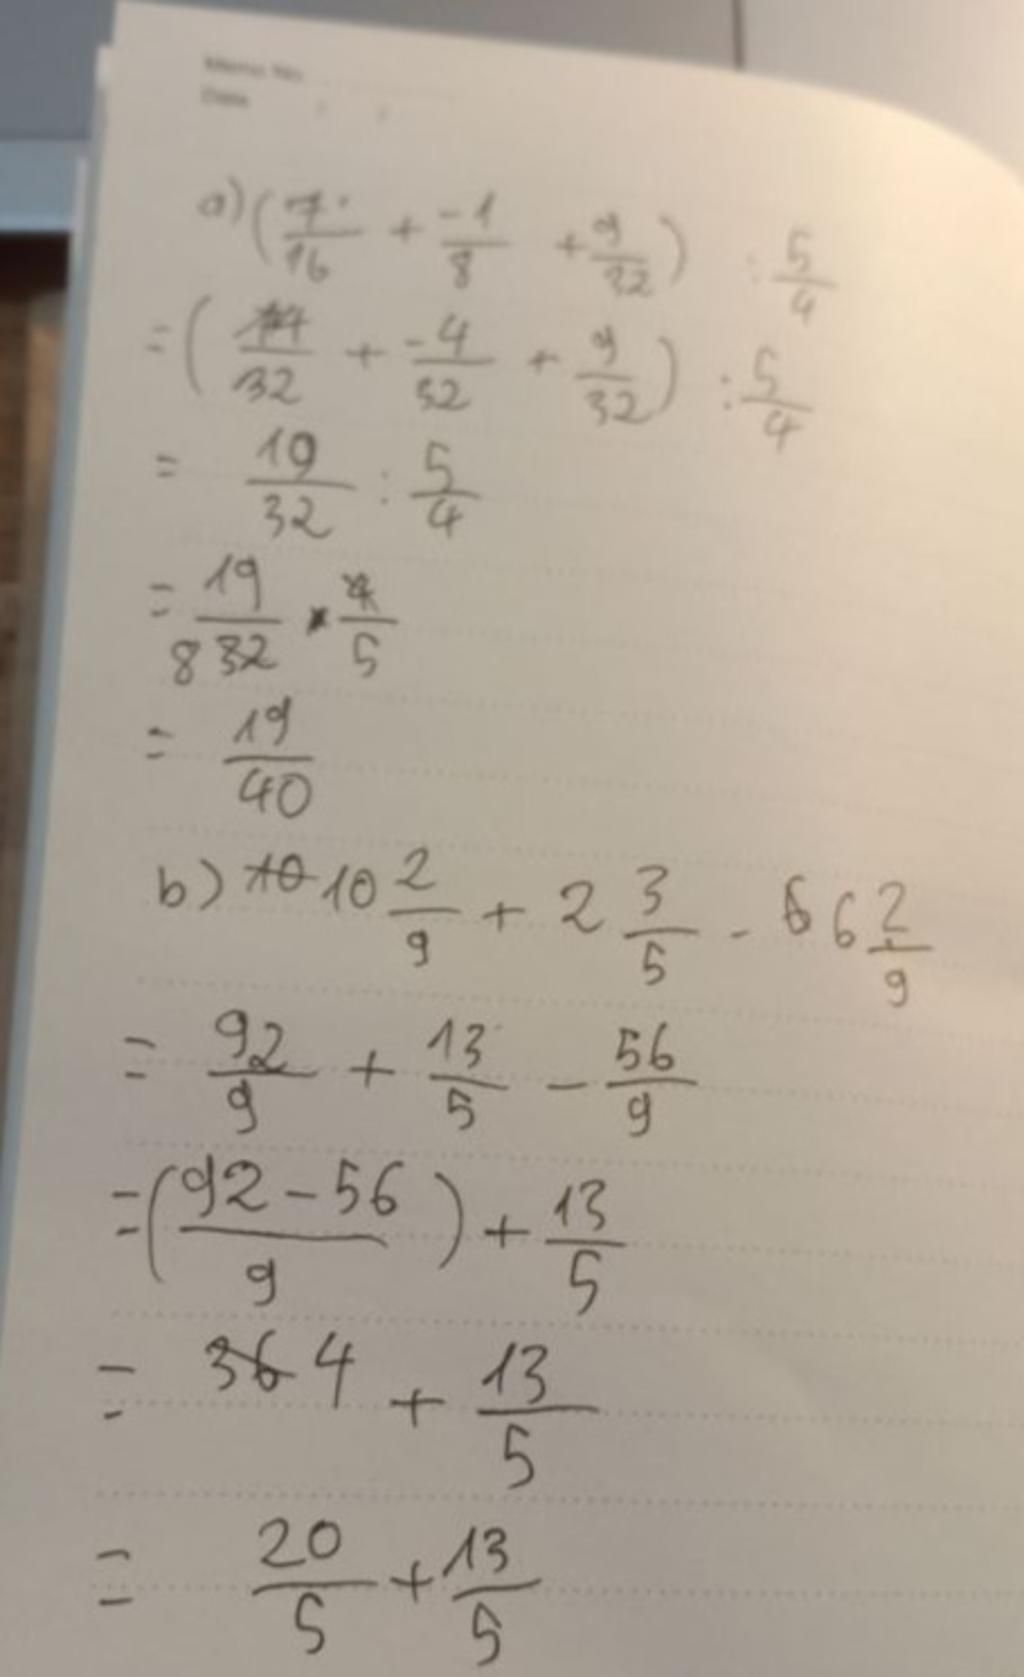 Memo No.
Date / /
a) (7/16 + -1/8 + 9/32) : 5/4
= (14/32 + -4/32 + 9/32) : 5/4
= 19/32 : 5/4
= 19/8 32 · 4/5
= 19/40
b) 10 10 2/9 + 2 3/5 - 6 6 2/9
= 92/9 + 13/5 - 56/9
= (92 - 56/9) + 13/5
= 36 4 + 13/5
= 20/5 + 13/5